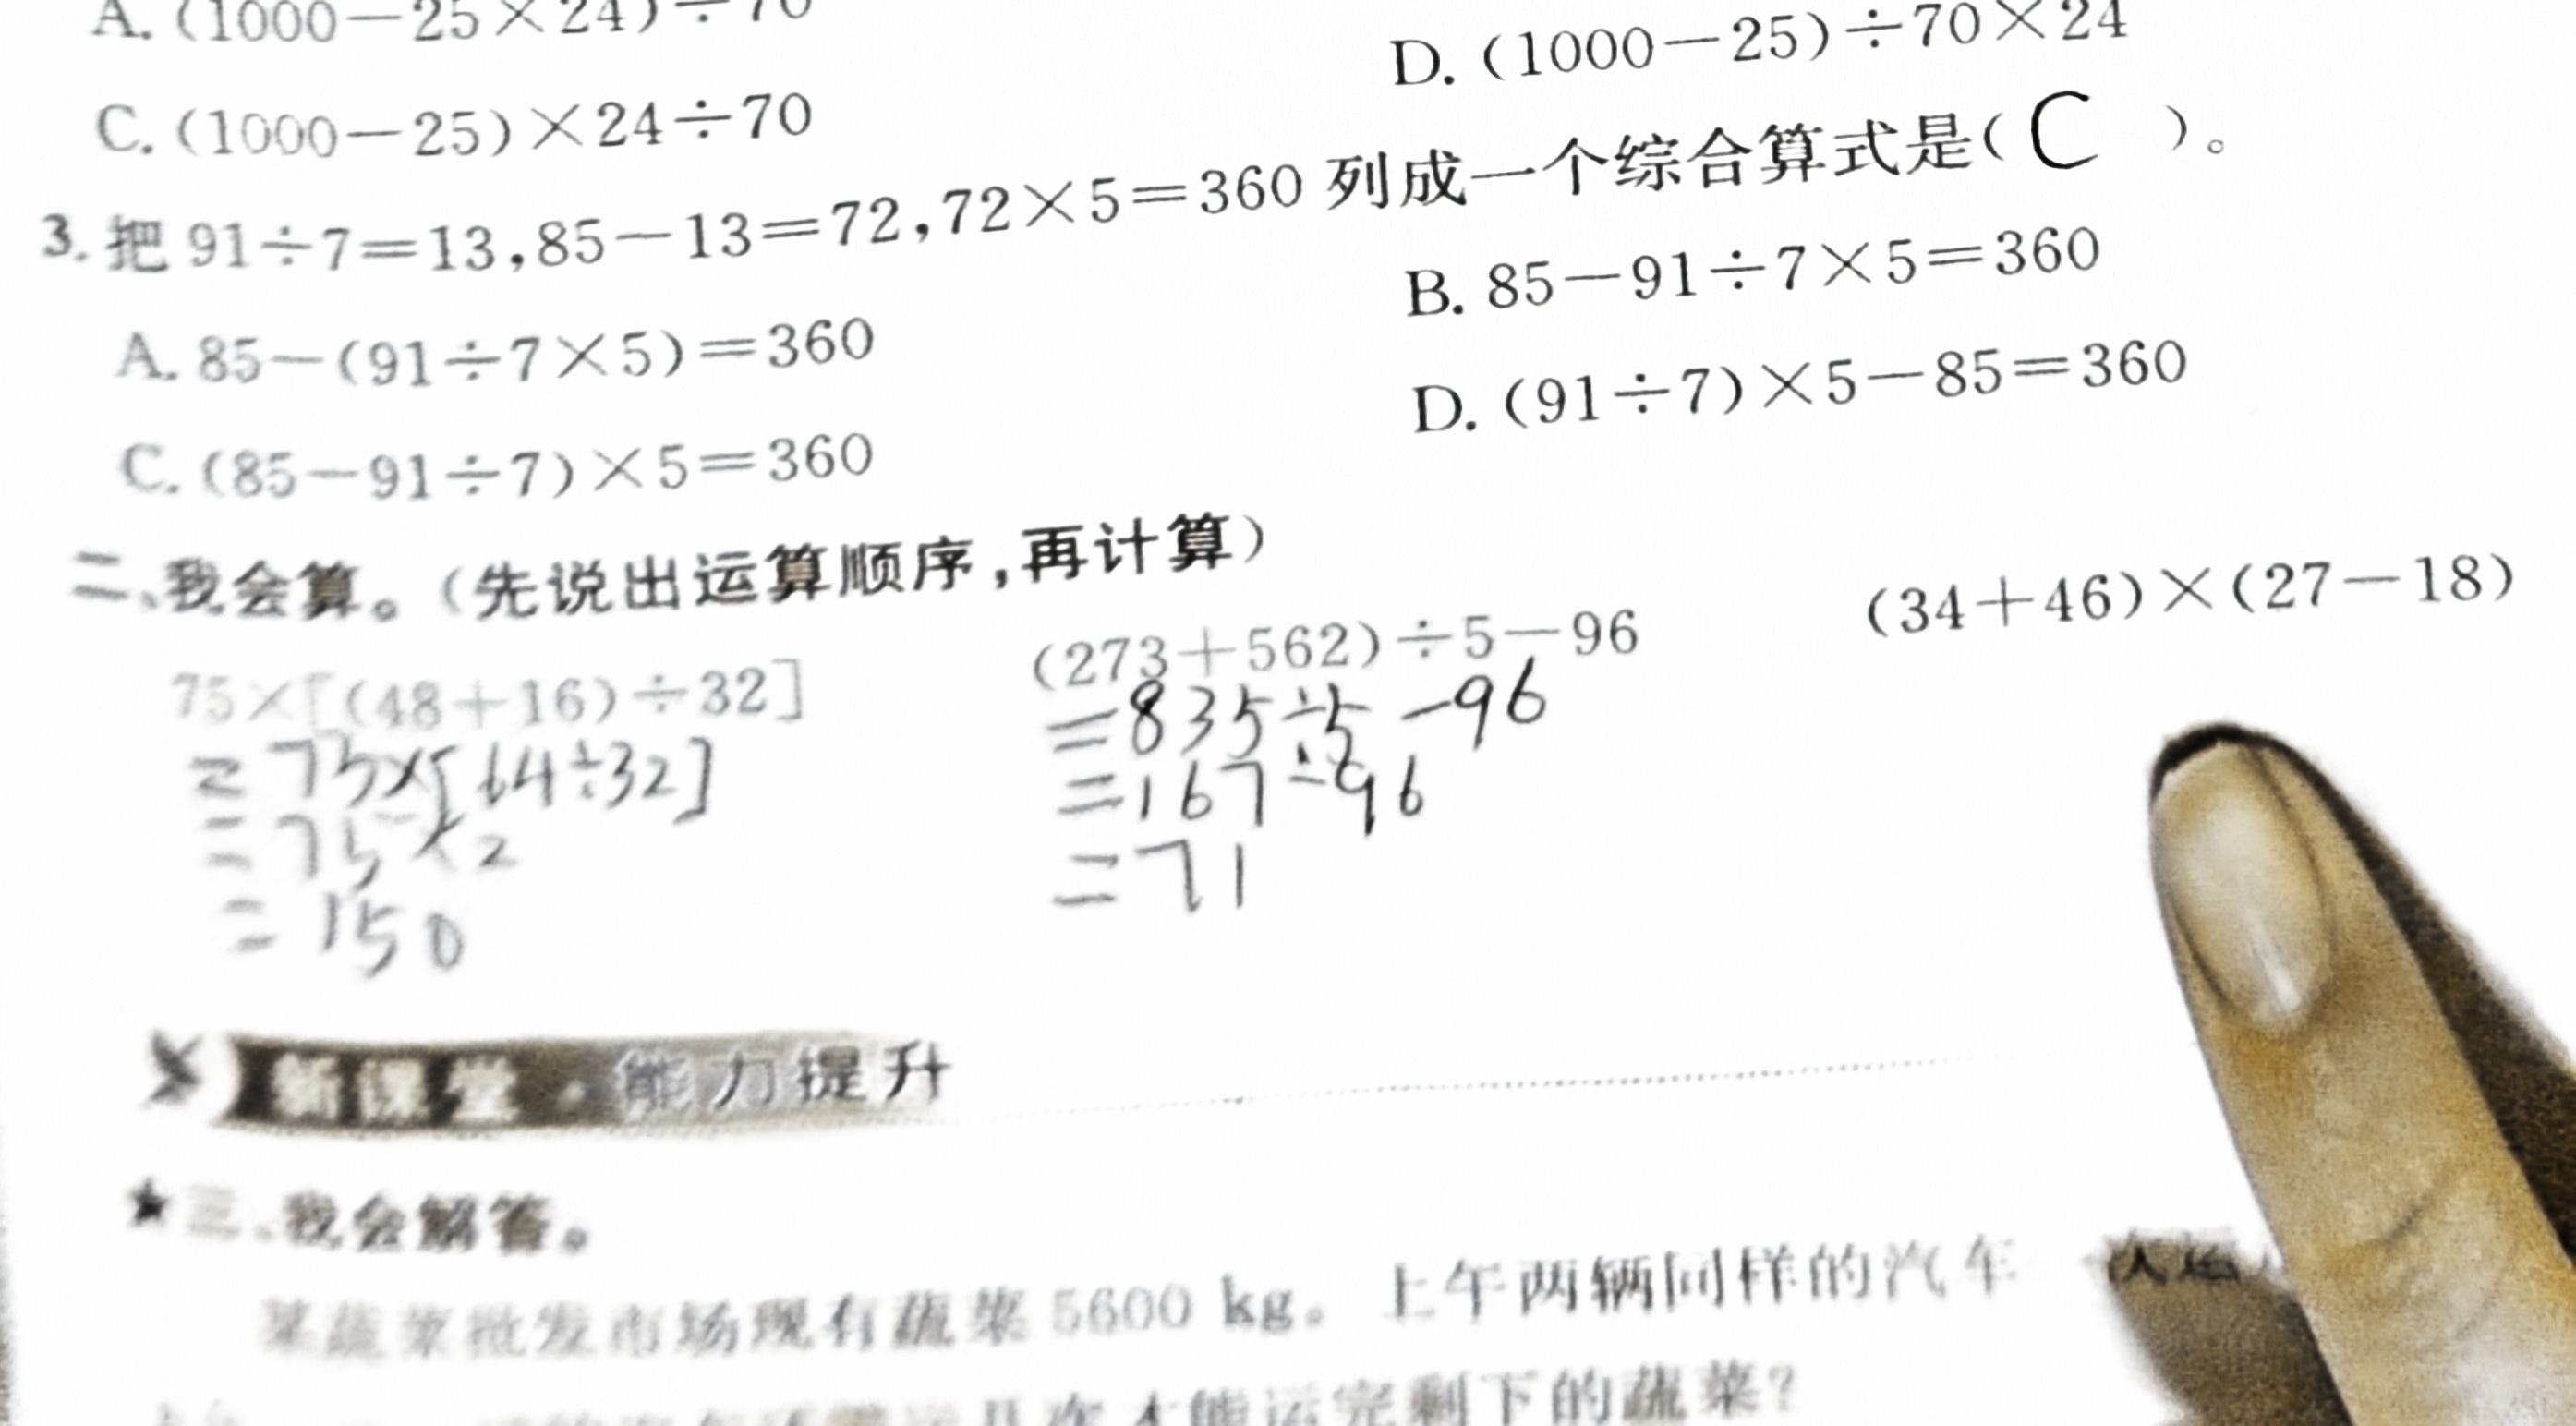 A. (1000－25×24)÷70
D. (1000－25)÷70×24
C. (1000－25)×24÷70
3. 把 91÷7＝13,85－13＝72,72×5＝360 列成一个综合算式是( C )。
A. 85－(91÷7×5)＝360
B. 85－91÷7×5＝360
C. (85－91÷7)×5＝360
D. (91÷7)×5－85＝360
二、我会算。(先说出运算顺序,再计算)
75×[(48＋16)÷32]
(273＋562)÷5－96
(34＋46)×(27－18)
=75×[64÷32]
=835÷5-96
=75×2
=167-96
=150
=71
新课堂·能力提升
★三、我会解答。
某蔬菜批发市场现有蔬菜 5600 kg。上午两辆同样的汽车一次运
几次才能运完剩下的蔬菜?